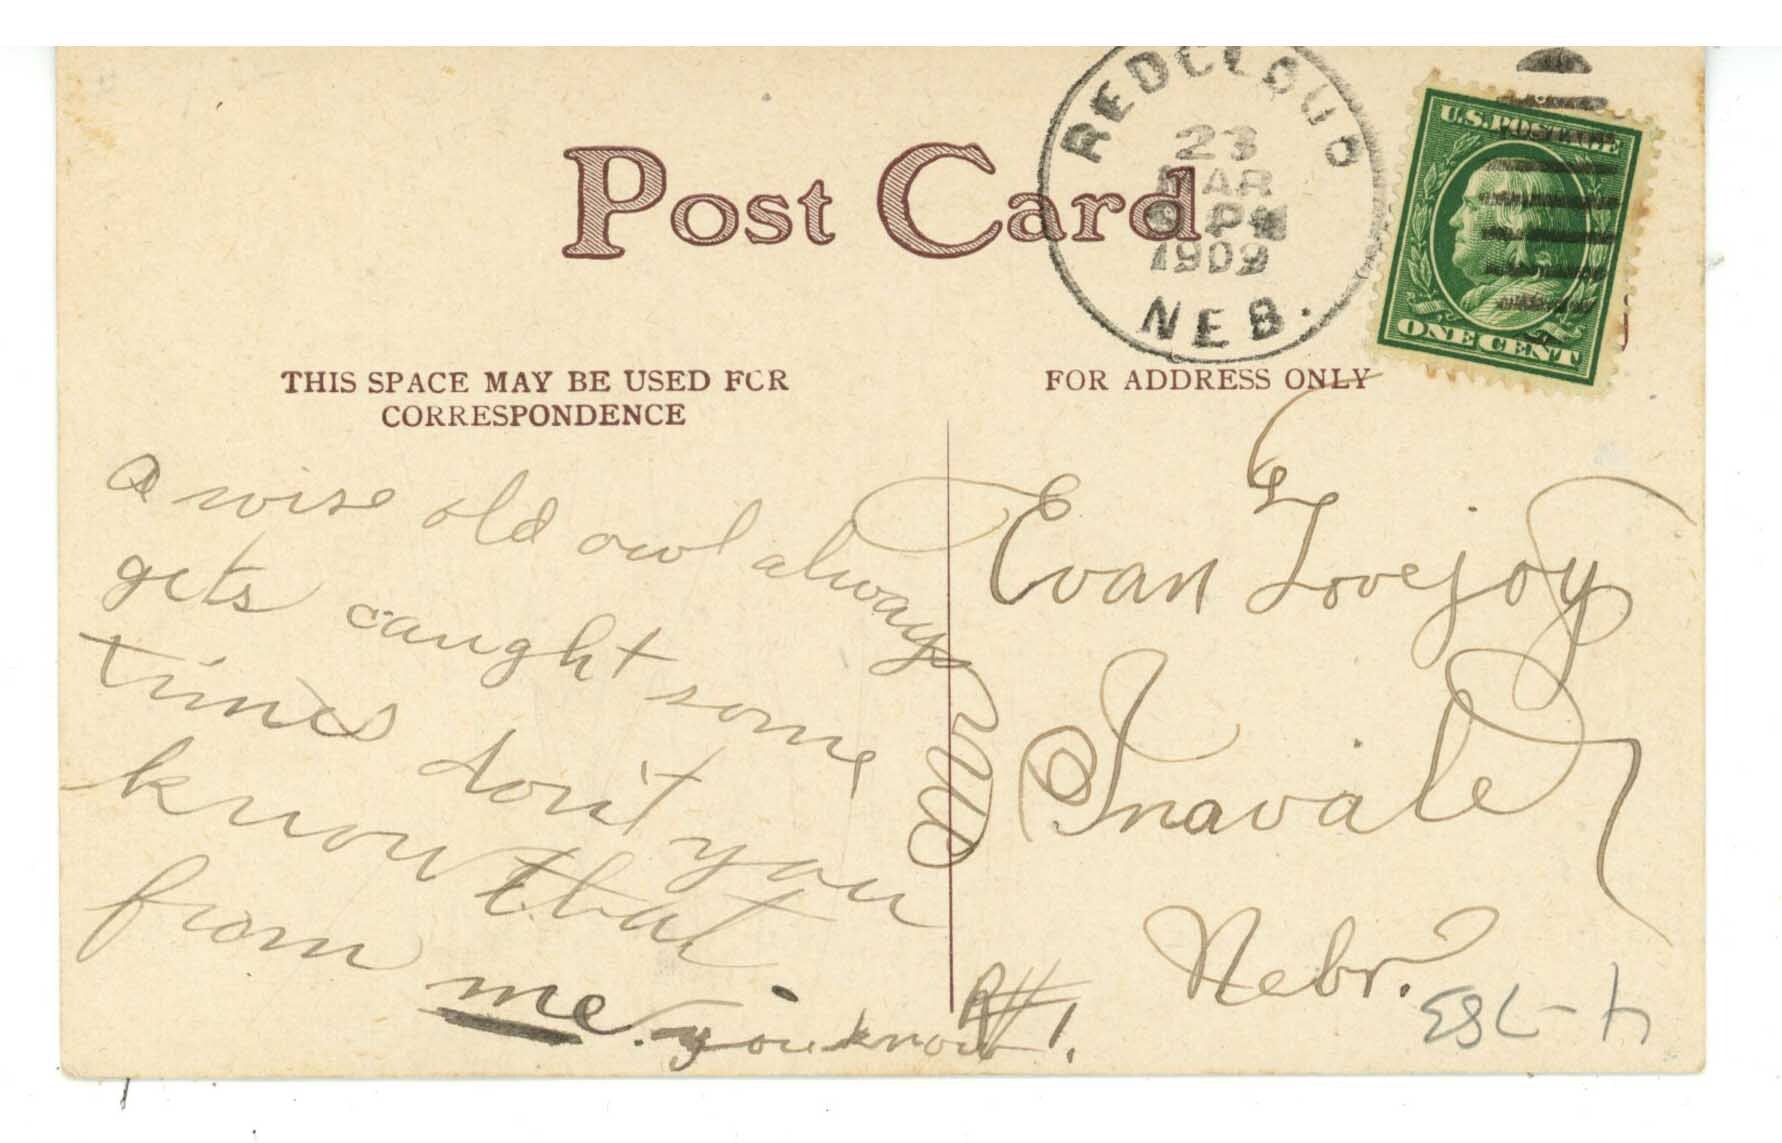 REDCLOUD
23
MAR
PM
1909
NEB.
U.S. POSTAGE
ONE CENT
Post Card
THIS SPACE MAY BE USED FOR
CORRESPONDENCE
FOR ADDRESS ONLY
a wise old owl always
gets caught some
times don't you
know that
from me. you know
Evan Lovejoy
Inavale
Nebr.
R#1.
4-783